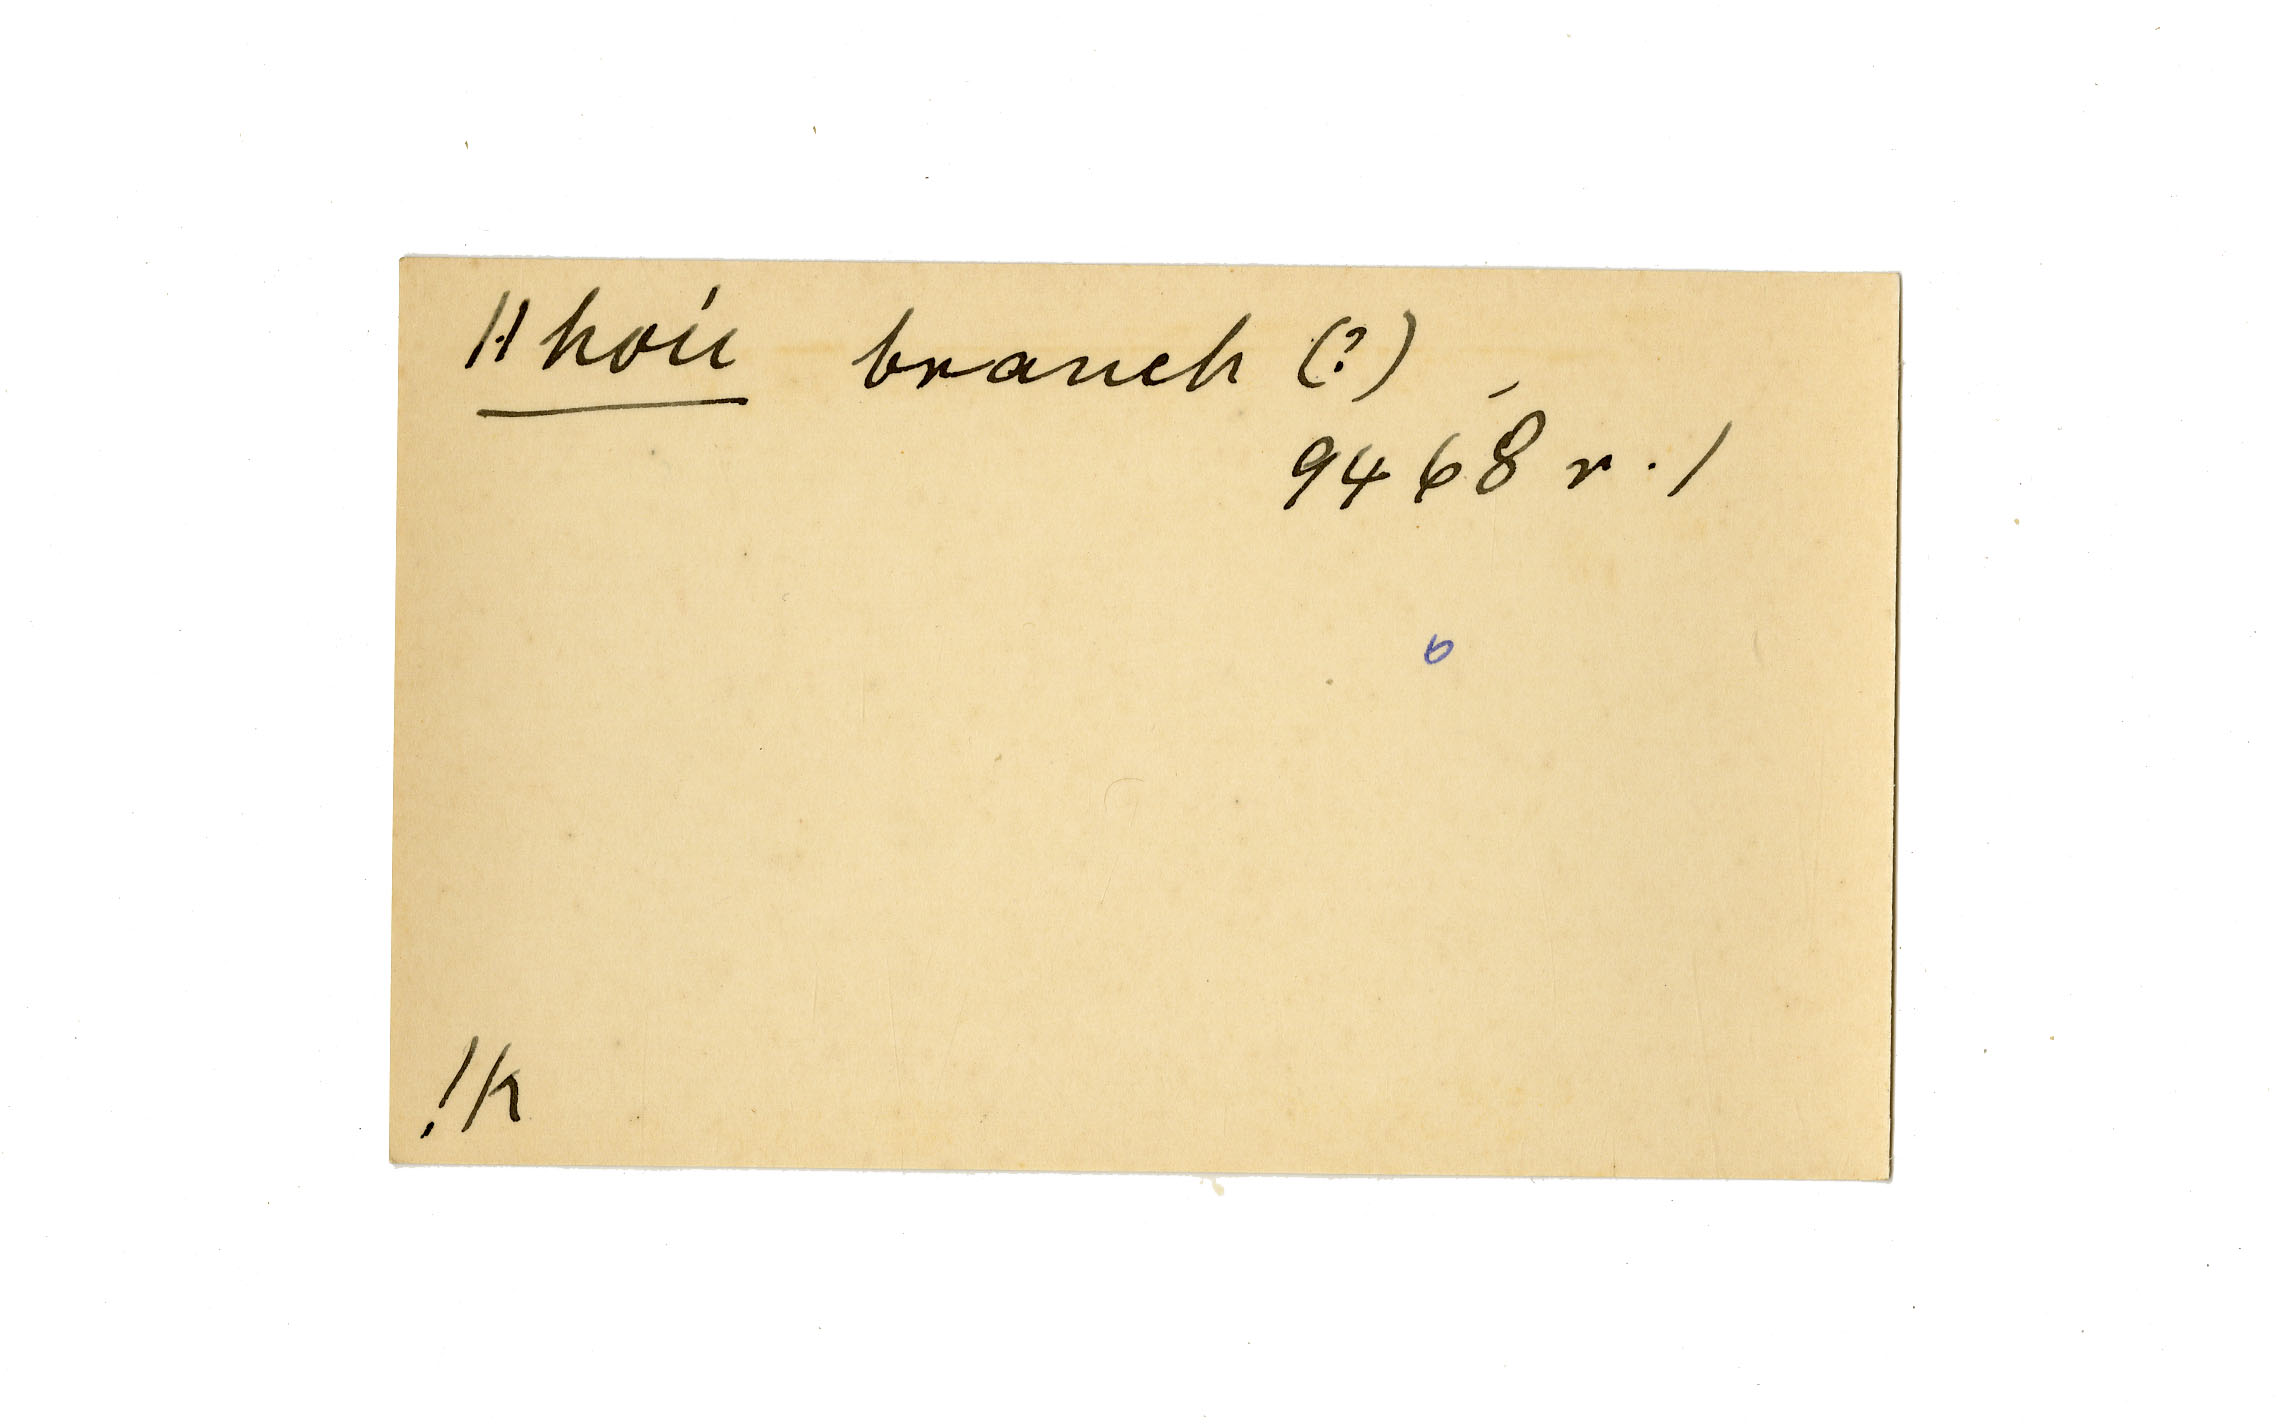 ǁhoíi branch (?)
9468 r. 1
6
!k